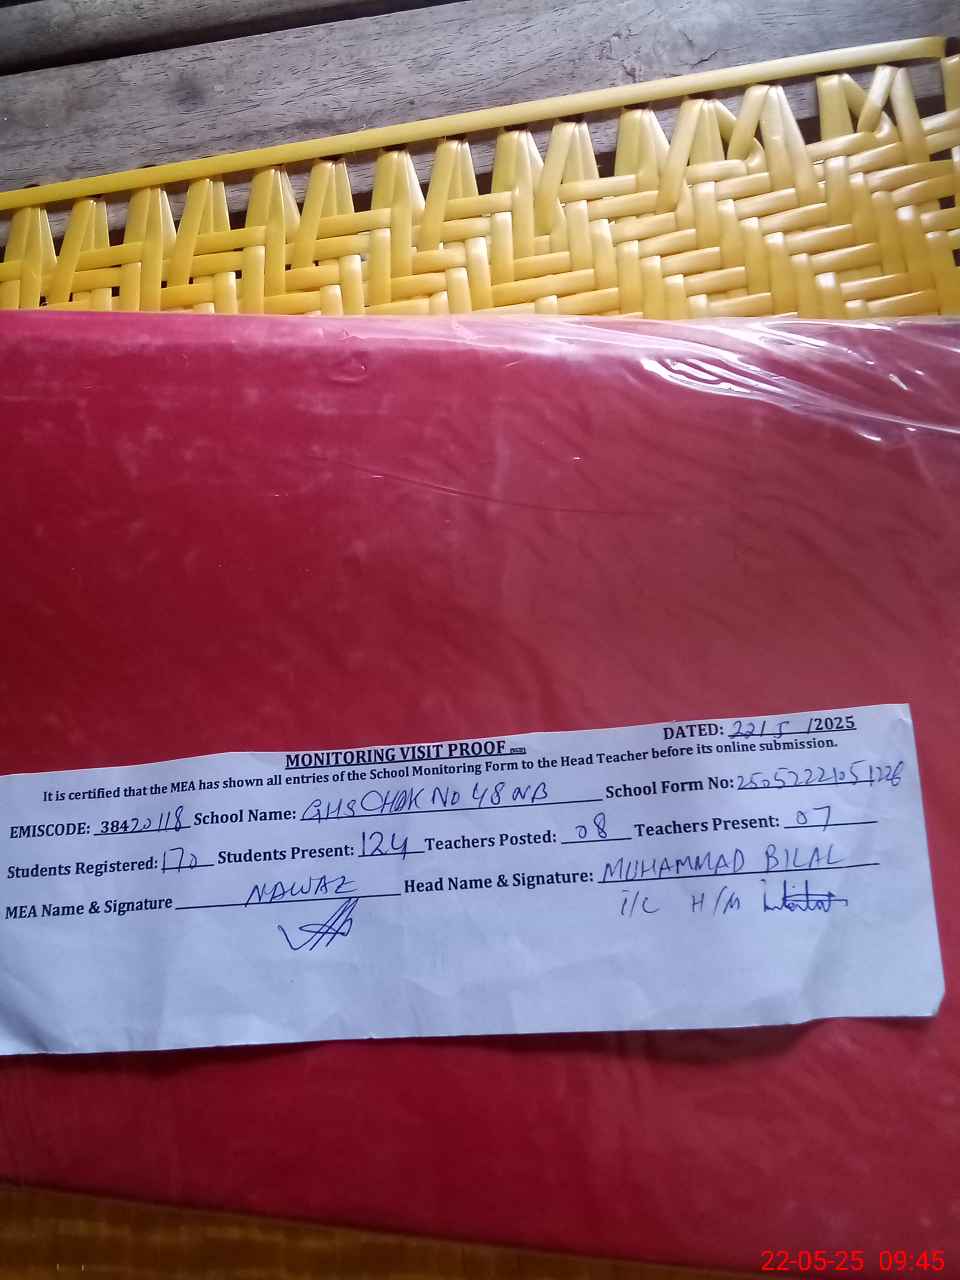 MONITORING VISIT PROOF
DATED: 22/5/2025
It is certified that the MEA has shown all entries of the School Monitoring Form to the Head Teacher before its online submission.
EMISCODE: 38420118 School Name: GHS CHAK NO 48 NB School Form No: 25052221051226
Students Registered: 170 Students Present: 124 Teachers Posted: 08 Teachers Present: 07
MEA Name & Signature NAWAZ Head Name & Signature: MUHAMMAD BILAL
i/c H/M
22-05-25 09:45